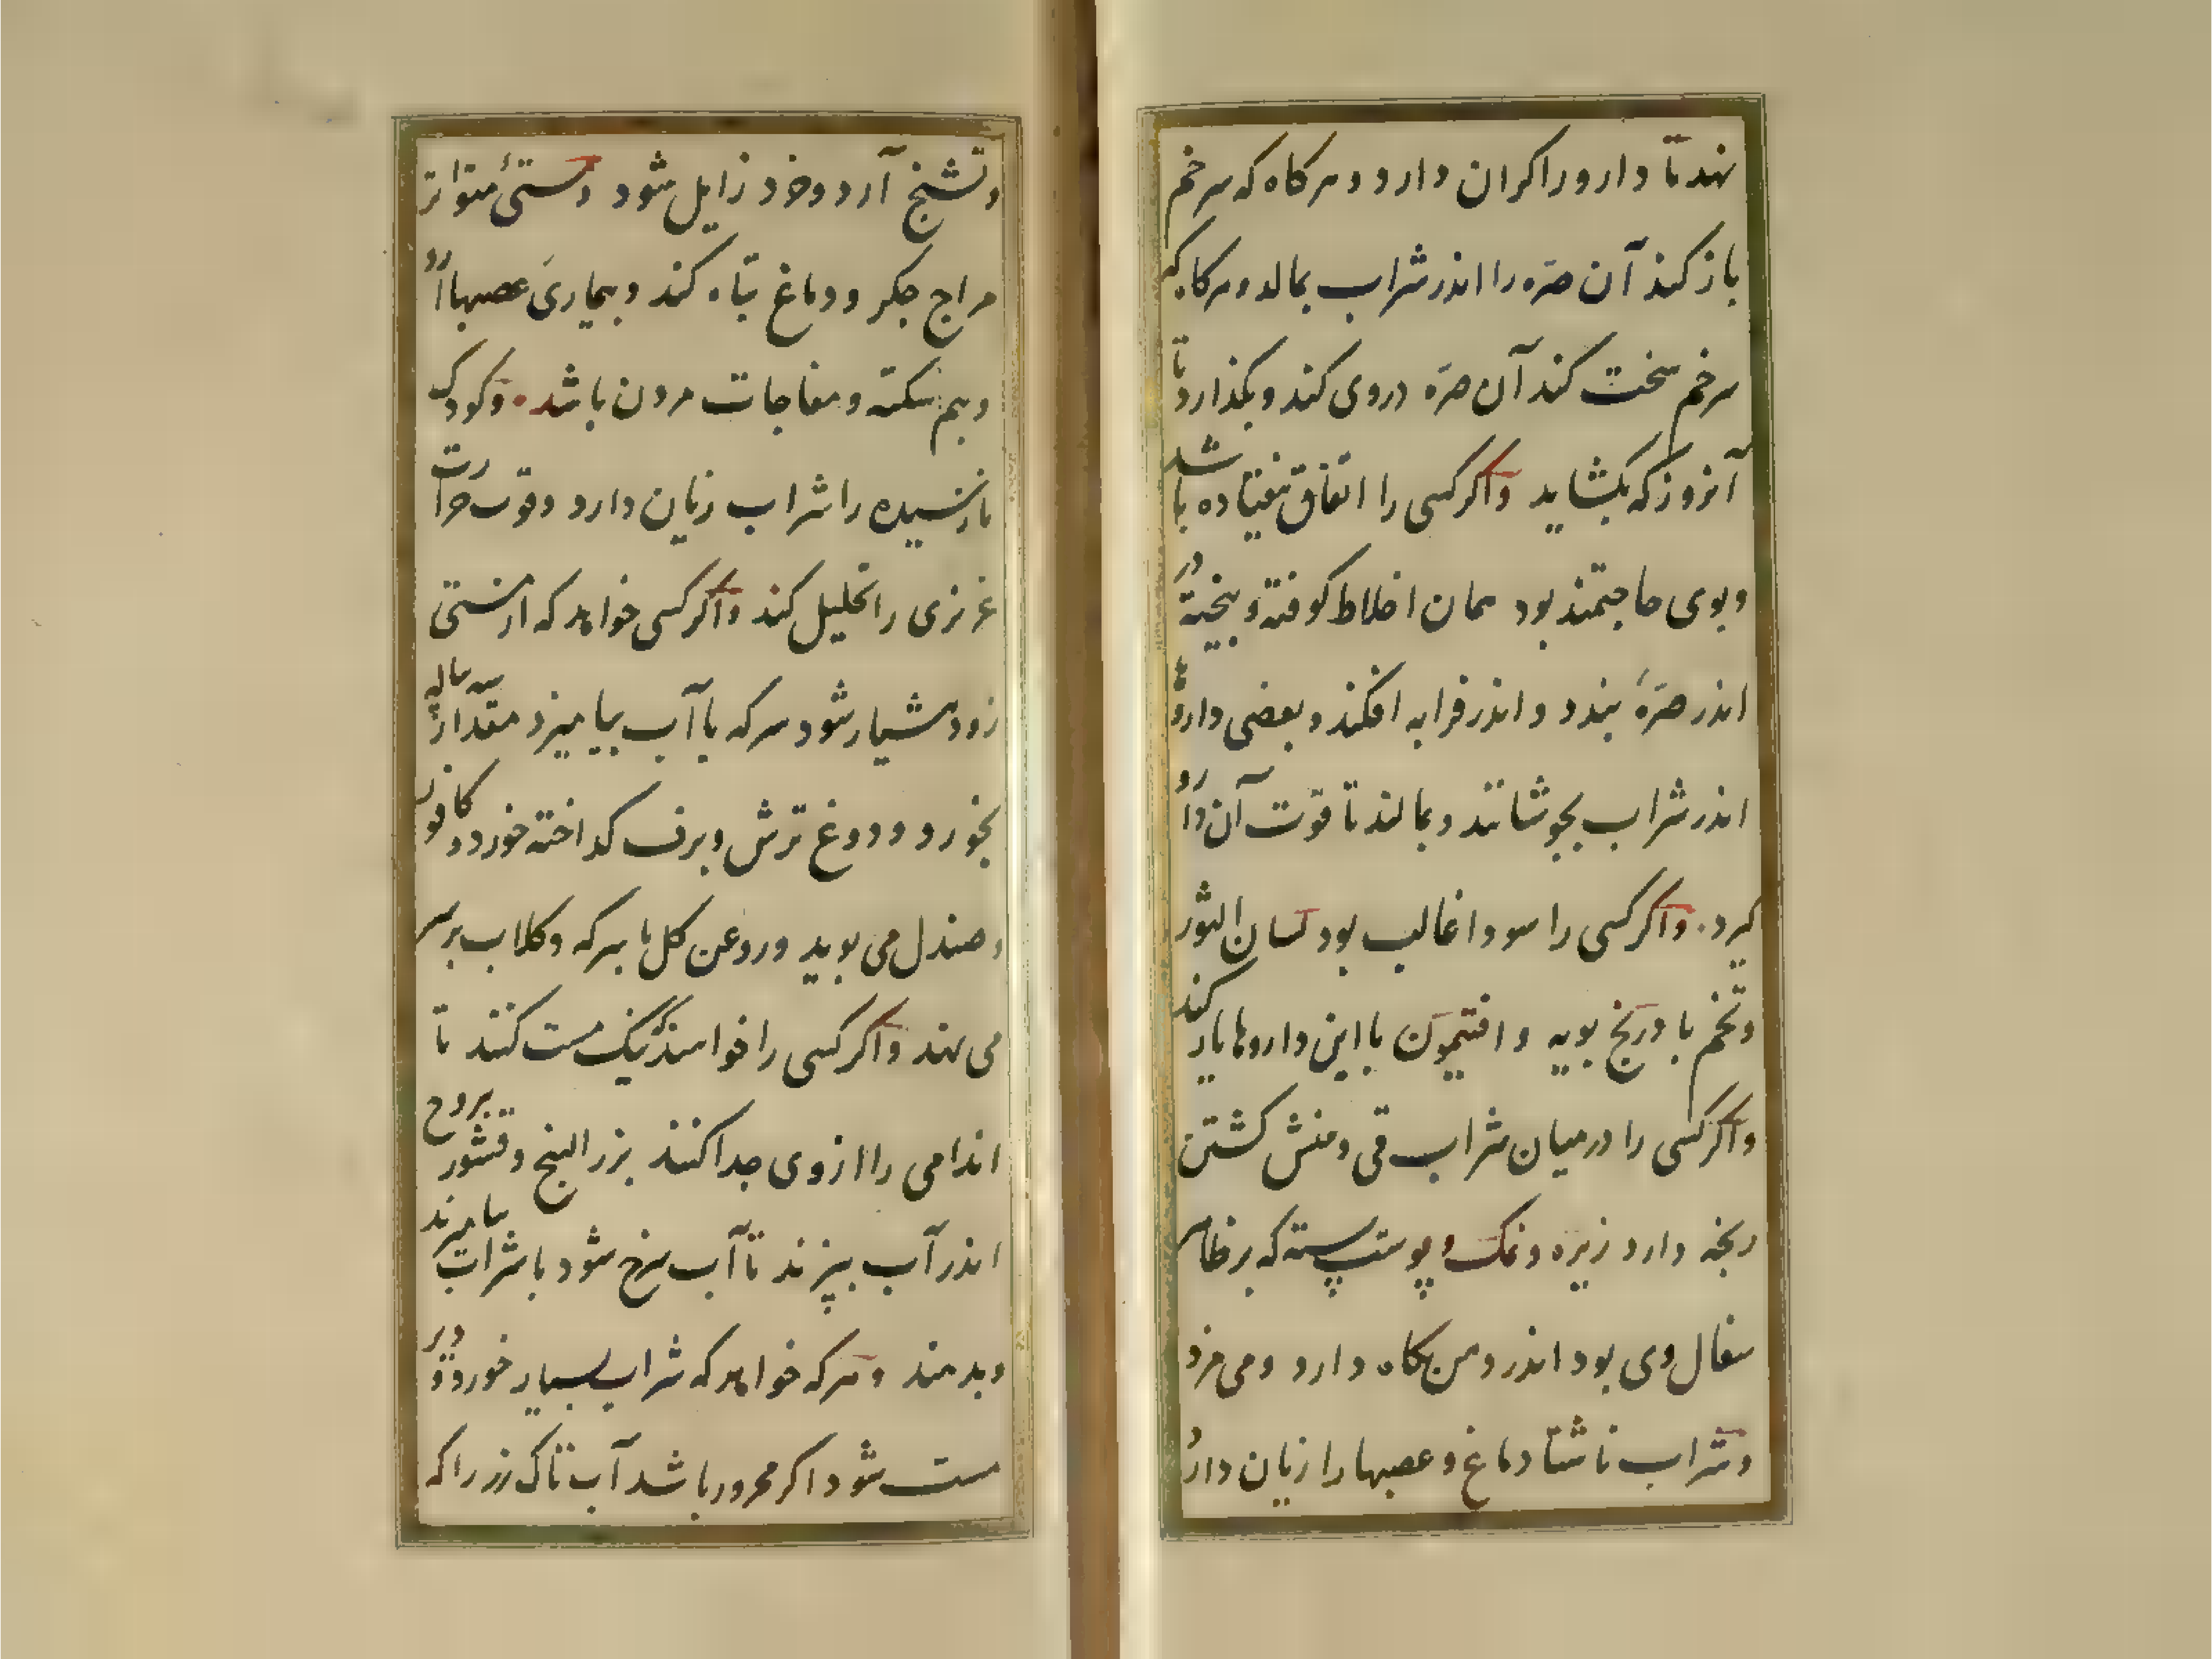 نهد تا دارو را کران دارد و هرکاه که سر خم
باز کند آن صرّه را اندر شراب بمالد و هرکاه که
سر خم سخت کند آن صرّه دروی کند و بکذارد تا
آنروز که بکشاید و اکر کسی را اتفاق نیفتاده باشد
و بوی حاجتمند بود همان اخلاط کوفته و بیخته در
اندر صرّه بندد و اندر قرابه افکند و بعضی داروها
اندر شراب بجوشانند و بمالند تا قوّت آن دارو
کیرد. و اکر کسی را سودا غالب بود لسان الثور
و تخم بادرنج بویه و افتیمون با این داروها یار کند
و اکر کسی را در میان شراب قی و منش کشتن
رنجه دارد زیره و نمک و پوست پسته که بر ظاهر
سفال وی بود اندر دهن نکاه دارد و می مزد
و شراب ناشتا دماغ و عصبها را زیان دارد
و تشنج آرد و خرد زایل شود و مستئ متواتر
مزاج جکر و دماغ تباه کند و بیماری عصبها آرد
و بیم سکته و مفاجات مردن باشد. و کودک
نارسیده را شراب زیان دارد و قوت حرارت
غریزی را تحلیل کند و اکر کسی خواهد که از مستی
زود هشیار شود سرکه با آب بیامیزد مقدار سه پیاله
بخورد و دوغ ترش و برف کداخته خورد و کافور
و صندل می بوید و روغن کل با سرکه و کلاب بر سر
می نهد و اکر کسی را خواهند که نیک مست کنند تا
اندامی را از وی جدا کنند بزر البنج و قشور یبروح
اندر آب بپزند تا آب سرخ شود با شراب بیامیزند
و بدهند و هرکه خواهد که شراب بسیار خورد و دیر
مست شود اکر محرور باشد آب تاک رز را که